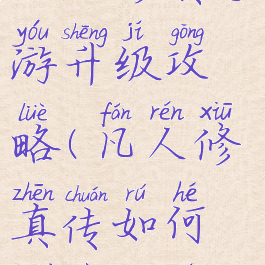 yóu shēng jí gōng
游升级攻
lüè fán rén xiū
略(凡人修
zhēn chuán rú hé
真传如何